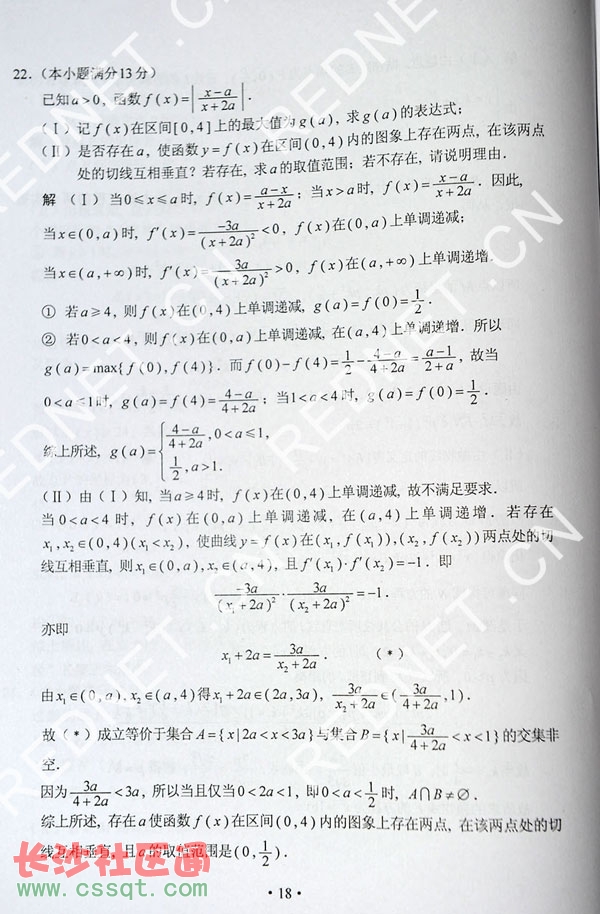 22. (本小题满分13分)
已知a>0, 函数f(x)=|(x-a)/(x+2a)|.
(Ⅰ)记f(x)在区间[0,4]上的最大值为g(a), 求g(a)的表达式;
(Ⅱ)是否存在a, 使函数y=f(x)在区间(0,4)内的图象上存在两点, 在该两点
处的切线互相垂直? 若存在, 求a的取值范围; 若不存在, 请说明理由.
解 (Ⅰ)当0≤x≤a时, f(x)=(a-x)/(x+2a); 当x>a时, f(x)=(x-a)/(x+2a). 因此,
当x∈(0,a)时, f′(x)=-3a/(x+2a)²<0, f(x)在(0,a)上单调递减;
当x∈(a,+∞)时, f′(x)=3a/(x+2a)²>0, f(x)在(a,+∞)上单调递增.
① 若a≥4, 则f(x)在(0,4)上单调递减, g(a)=f(0)=1/2.
② 若0<a<4, 则f(x)在(0,a)上单调递减, 在(a,4)上单调递增. 所以
g(a)=max{f(0),f(4)}. 而f(0)-f(4)=1/2-(4-a)/(4+2a)=(a-1)/(2+a), 故当
0<a≤1时, g(a)=f(4)=(4-a)/(4+2a); 当1<a<4时, g(a)=f(0)=1/2.
综上所述, g(a)={(4-a)/(4+2a), 0<a≤1,
1/2, a>1.
(Ⅱ)由(Ⅰ)知, 当a≥4时, f(x)在(0,4)上单调递减, 故不满足要求.
当0<a<4时, f(x)在(0,a)上单调递减, 在(a,4)上单调递增. 若存在
x₁,x₂∈(0,4)(x₁<x₂), 使曲线y=f(x)在(x₁,f(x₁)),(x₂,f(x₂))两点处的切
线互相垂直, 则x₁∈(0,a),x₂∈(a,4), 且f′(x₁)·f′(x₂)=-1. 即
-3a/(x₁+2a)²·3a/(x₂+2a)²=-1.
亦即
x₁+2a=3a/(x₂+2a). (*)
由x₁∈(0,a),x₂∈(a,4)得x₁+2a∈(2a,3a), 3a/(x₂+2a)∈(3a/(4+2a),1).
故(*)成立等价于集合A={x|2a<x<3a}与集合B={x|3a/(4+2a)<x<1}的交集非
空.
因为3a/(4+2a)<3a, 所以当且仅当0<2a<1, 即0<a<1/2时, A∩B≠∅.
综上所述, 存在a使函数f(x)在区间(0,4)内的图象上存在两点, 在该两点处的切
线互相垂直, 且a的取值范围是(0,1/2).
长沙社区通
www.cssqt.com
· 18 ·
REDNET.CN